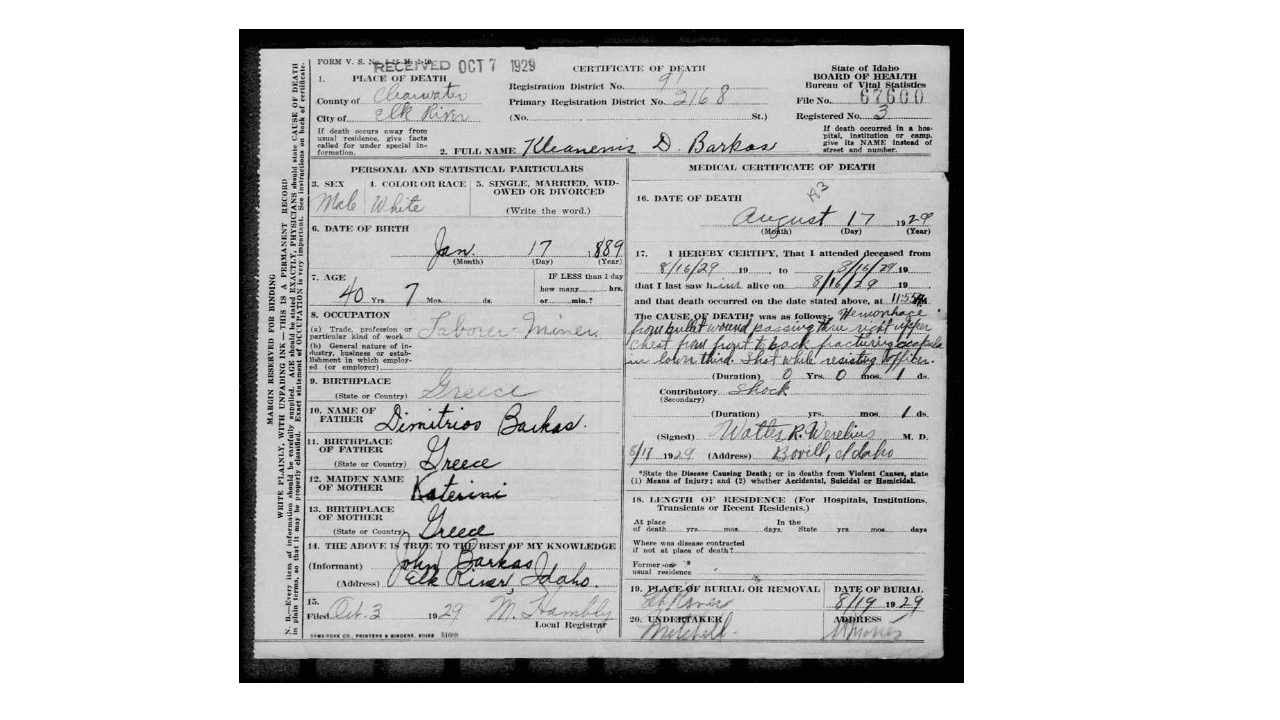 FORM V. S. No.
RECEIVED OCT 7 1929
CERTIFICATE OF DEATH
State of Idaho
BOARD OF HEALTH
Bureau of Vital Statistics
File No. 67600
Registered No. 3
If death occurred in a hos-
pital, institution or camp,
give its NAME instead of
street and number.
1. PLACE OF DEATH
County of Clearwater
City of Elk River
If death occurs away from
usual residence, give facts
called for under special in-
formation.
Registration District No. 91
Primary Registration District No. 2168
(No. St.)
2. FULL NAME Kleanenis D. Barkas
PERSONAL AND STATISTICAL PARTICULARS
3. SEX
Male
4. COLOR OR RACE
White
5. SINGLE, MARRIED, WID-
OWED OR DIVORCED
(Write the word.)
6. DATE OF BIRTH
Jan. 17 1889
(Month) (Day) (Year)
7. AGE
40 Yrs. 7 Mos. ds.
IF LESS than 1 day
how many hrs.
or min.?
8. OCCUPATION
(a) Trade, profession or
particular kind of work Laborer-Miner
(b) General nature of in-
dustry, business or estab-
lishment in which employ-
ed (or employer)
9. BIRTHPLACE
(State or Country) Greece
10. NAME OF
FATHER Dimitrios Barkas.
11. BIRTHPLACE
OF FATHER
(State or Country) Greece
12. MAIDEN NAME
OF MOTHER Katerini
13. BIRTHPLACE
OF MOTHER
(State or Country) Greece
14. THE ABOVE IS TRUE TO THE BEST OF MY KNOWLEDGE
(Informant) John Barkas
(Address) Elk River, Idaho.
15.
Filed Oct. 3 1929 M. Hambly
Local Registrar
SYMS-YORK CO., PRINTERS & BINDERS, BOISE
MEDICAL CERTIFICATE OF DEATH
16. DATE OF DEATH
August 17 1929
(Month) (Day) (Year)
17. I HEREBY CERTIFY, That I attended deceased from
8/16/29 19 , to 8/16/29 19
that I last saw him alive on 8/16/29 19
and that death occurred on the date stated above, at 11:55 M.
The CAUSE OF DEATH* was as follows: Hemorrhage
from bullet wound passing thru right upper
chest from front to back fracturing scapula
in lower third. Shot while resisting officer.
(Duration) 0 Yrs. 0 mos. 1 ds.
Contributory Shock
(Secondary)
(Duration) yrs. mos. 1 ds.
(Signed) Walter R. Werelius M. D.
1929 (Address) Bovill, Idaho
*State the Disease Causing Death; or in deaths from Violent Causes, state
(1) Means of Injury; and (2) whether Accidental, Suicidal or Homicidal.
18. LENGTH OF RESIDENCE (For Hospitals, Institutions,
Transients or Recent Residents.)
At place In the
of death yrs. mos. days. State yrs. mos. days
Where was disease contracted
if not at place of death?
Former or
usual residence
19. PLACE OF BURIAL OR REMOVAL
Elk River
DATE OF BURIAL
8/19 1929
20. UNDERTAKER
Mitchell
ADDRESS
MARGIN RESERVED FOR BINDING
WRITE PLAINLY, WITH UNFADING INK—THIS IS A PERMANENT RECORD
N. B.—Every item of information should be carefully supplied. AGE should be stated EXACTLY, PHYSICIANS should state CAUSE OF DEATH
in plain terms, so that it may be properly classified. Exact statement of OCCUPATION is very important. See instructions on back of certificate.